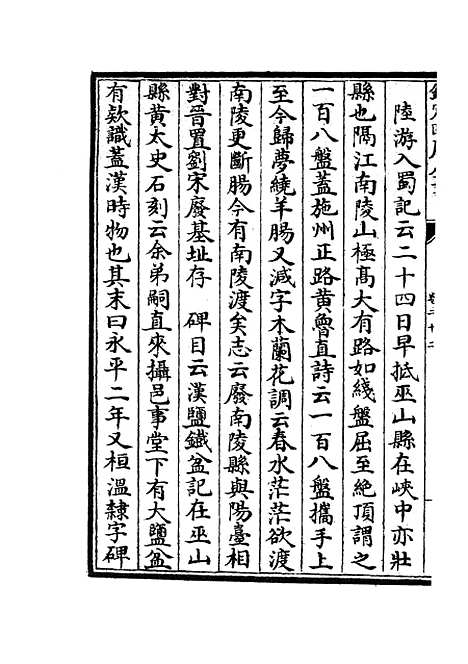 陸游入蜀記云二十四日早抵巫山縣在峽中亦壯
縣也隔江南陵山極髙大有路如綫盤屈至絶頂謂之
一百八盤蓋施州正路黄魯直詩云一百八盤攜手上
至今歸夢繞羊腸又減字木蘭花調云春水茫茫欲渡
南陵更斷腸今有南陵渡矣志云廢南陵縣與陽臺相
對晉置劉宋廢基址存　碑目云漢鹽鐵盆記在巫山
縣黄太史石刻云余弟嗣直來攝邑事堂下有大鹽盆
有欵識蓋漢時物也其末曰永平二年又桓溫隸字碑